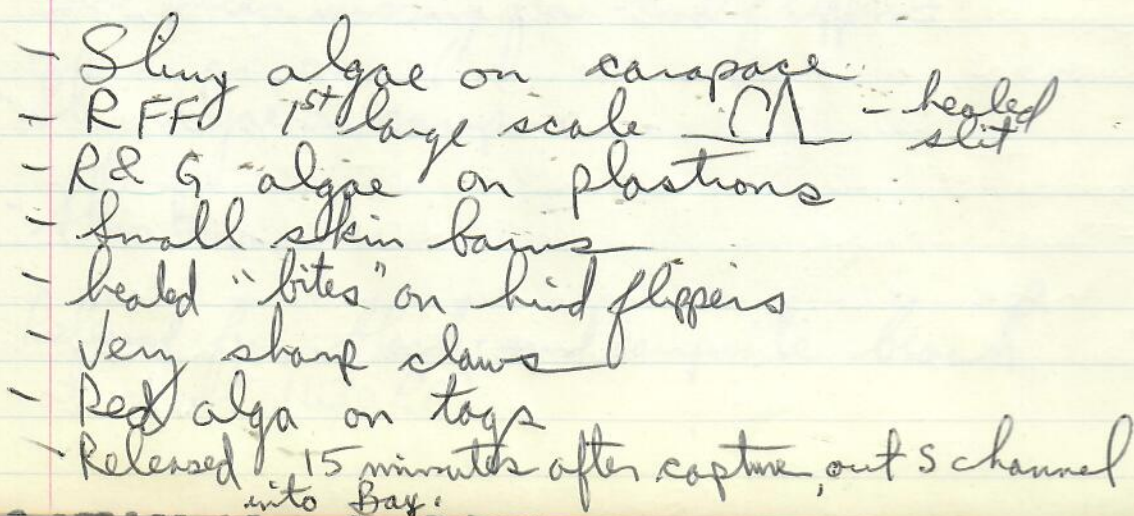 - Slimy algae on carapace
- RFF 1st large scale - healed slit
- R & G algae on plastrons
- Small skin barns
- healed "bites" on hind flippers
- Very sharp claws
- Red alga on tags
- Released 15 minutes after capture, out S channel
into Bay.